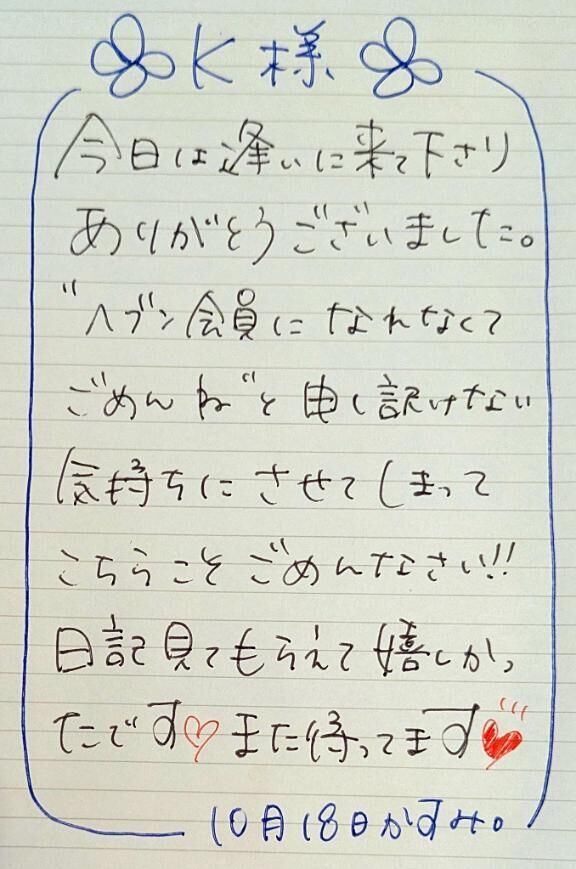 K様
今日は逢いに来て下さり
ありがとうございました。
"ヘブン会員になれなくて
ごめんね"と申し訳けない
気持ちにさせてしまって
こちらこそごめんなさい!!
日記見てもらえて嬉しかっ
たです♡また待ってます♥
10月18日かすみ。